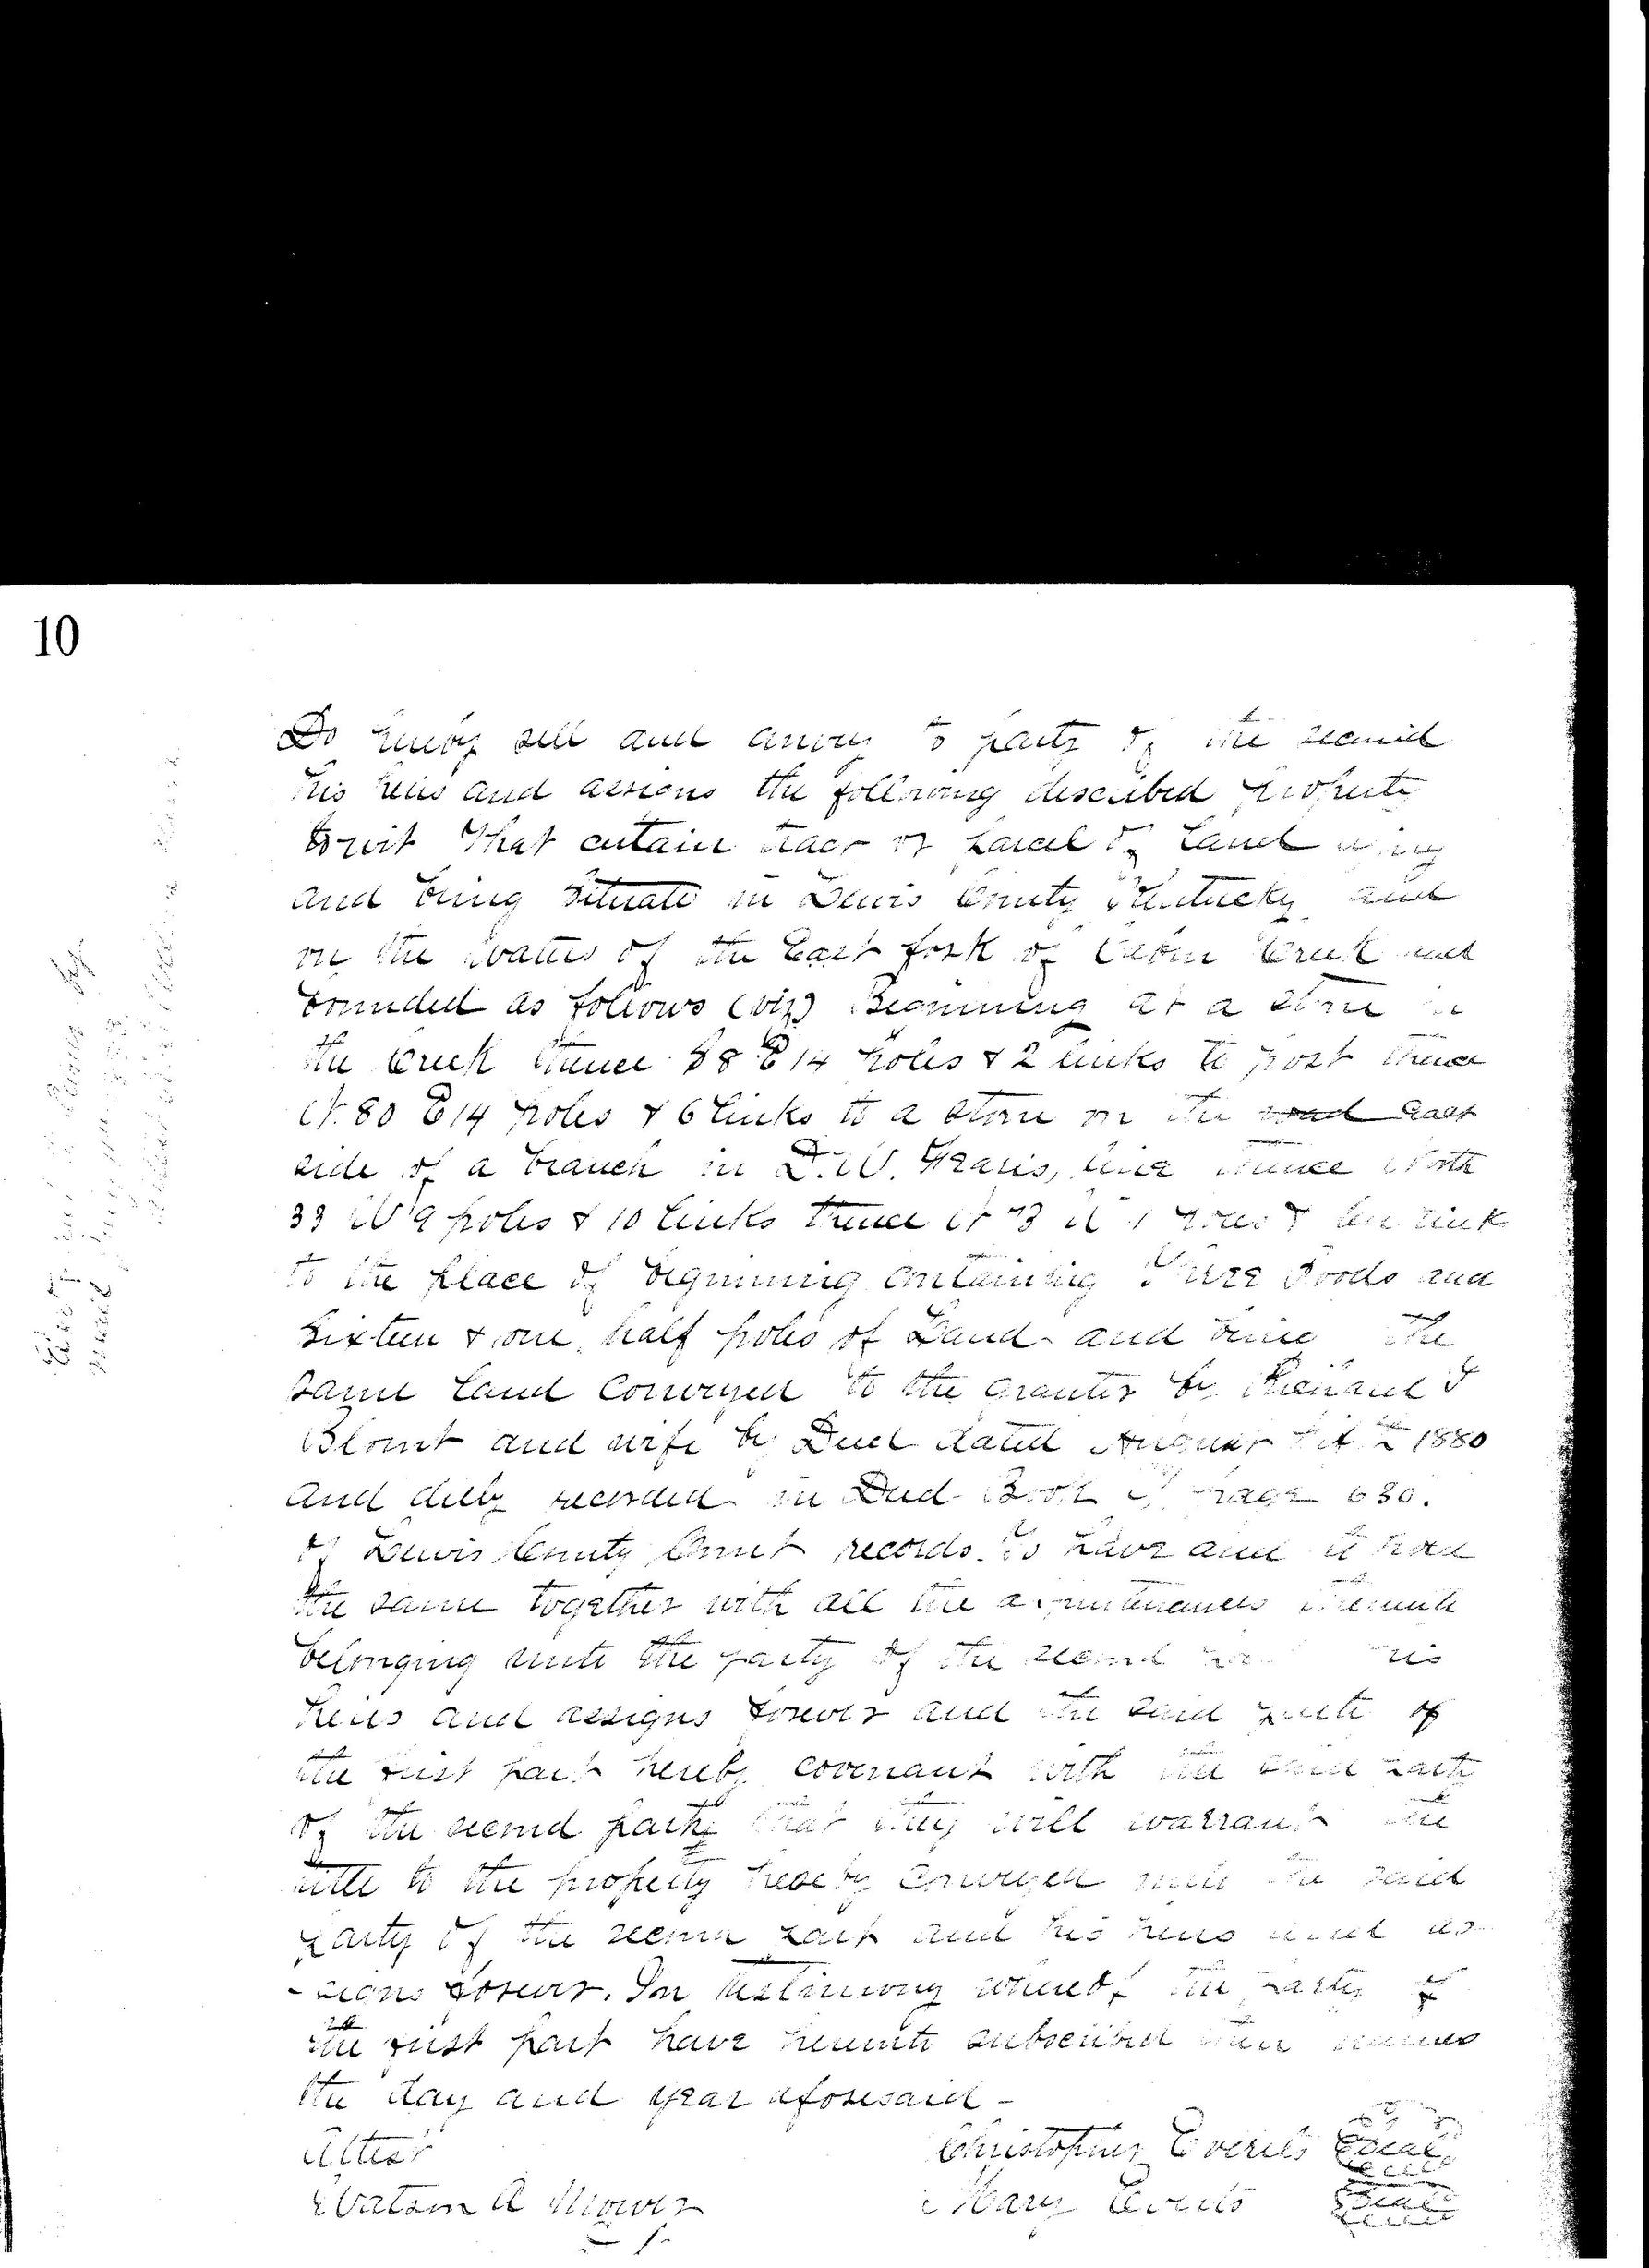 10
Do hereby sell and convey to party of the second
his heirs and assigns the following described property
towit That certain tract or parcel of Land lying
and being Situate in Lewis County Kentucky and
on the waters of the East fork of Cabin Creek and
bounded as follows (viz) Beginning at a stone in
the Creek thence S 8 E 14 poles & 2 links to post thence
N. 80 E 14 poles & 6 links to a stone on the road East
side of a branch in D. W. line thence North
33 W 9 poles & 10 links thence link
to the place of beginning containing Three Roods and
Sixteen & one half poles of Land and being the
same Land conveyed to the grantor by Richard
Blount and wife by Deed dated August 1880
and duly recorded in Deed Book page 630.
of Lewis County Court records. To have and to hold
the same together with all the appurtenances thereunto
belonging unto the party of the second his
heirs and assigns forever and the said party of
the first part hereby covenant with the said party
of the second party that they will warrant the
title to the property hereby conveyed unto the said
party of the second part and his heirs and as-
-signs forever. In testimony whereof the party of
the first part have hereunto subscribed their names
the day and year aforesaid -
Attest Christopher Everets Seal
Watson A Mary Everets Seal